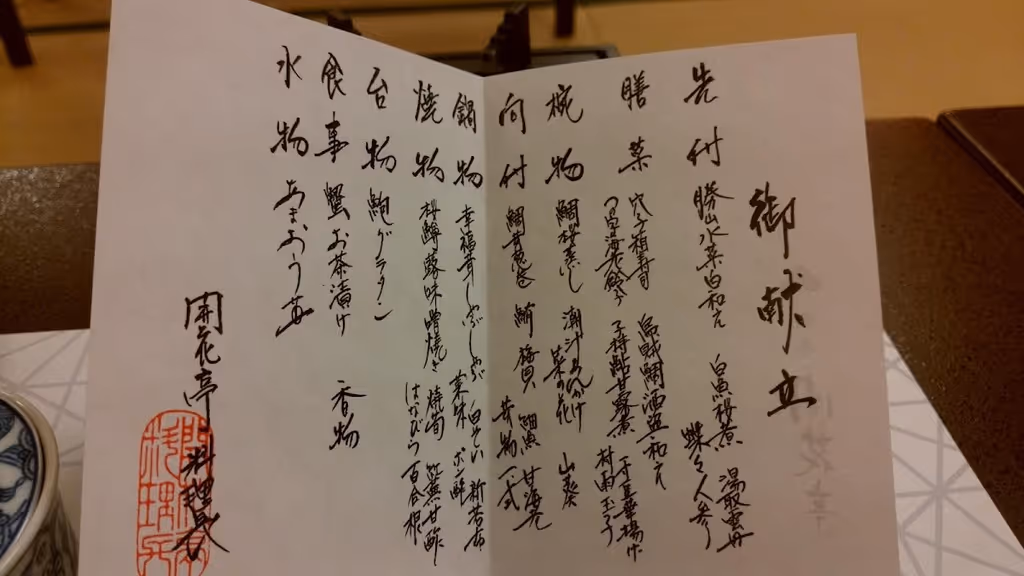 御献立
先付 勝山水菜白和え 白魚桜煮 湯取雲丹
蝶々人参
膳菜 穴子相寿司 烏賊鯛酒盗和え
つぶ貝 子持鮎甘露煮 子 揚げ
村雨玉子
椀物 鯛桜蒸し 潮汁あんかけ
菜の花 山葵
向付 鯛昔昆布 鰤 梅貝 鯛魚 甘海老
芽物一式
鍋物 幸福茸しゃぶしゃぶ 白せい 新若布
薬味 ポン酢
焼物 桜鱒蕗味噌焼き 焼筍 甘酢
はなびら百合根
台物 鮑グラタン
食事 蟹お茶漬け 香物
水物 あまおう苺
開花亭 料理長